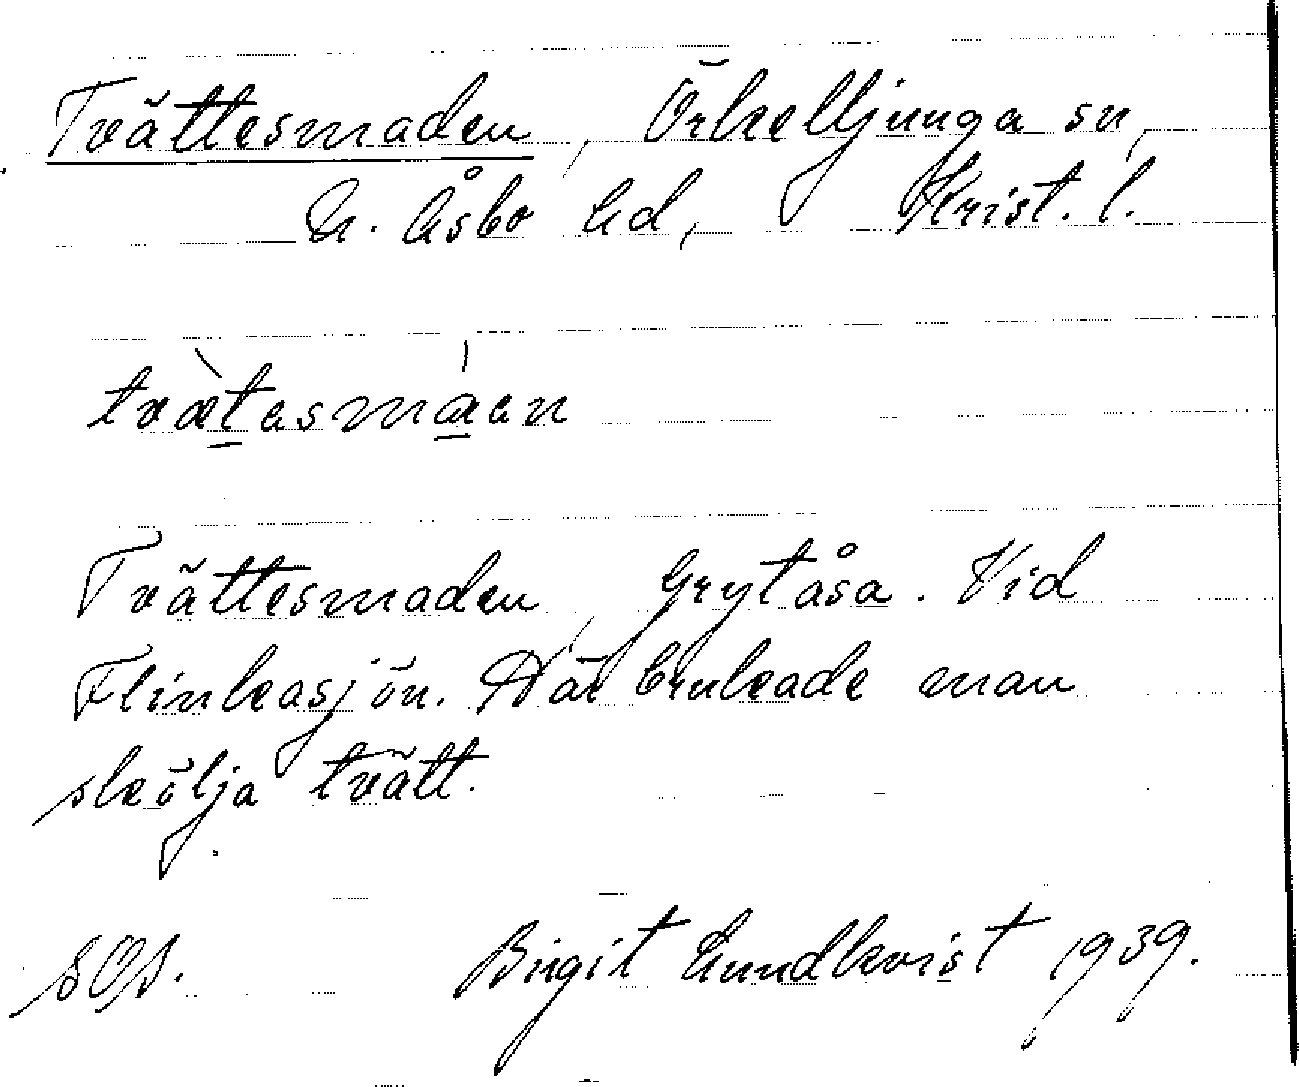 Tvättesmaden, Örkelljunga sn,
N. Åsbo hd, Krist. l.
tvætesmaen
Tvättesmaden, Grytåsa. Vid
Flinkasjön. Där brukade man
skölja tvätt.
SOS. Birgit Lundkvist 1939.